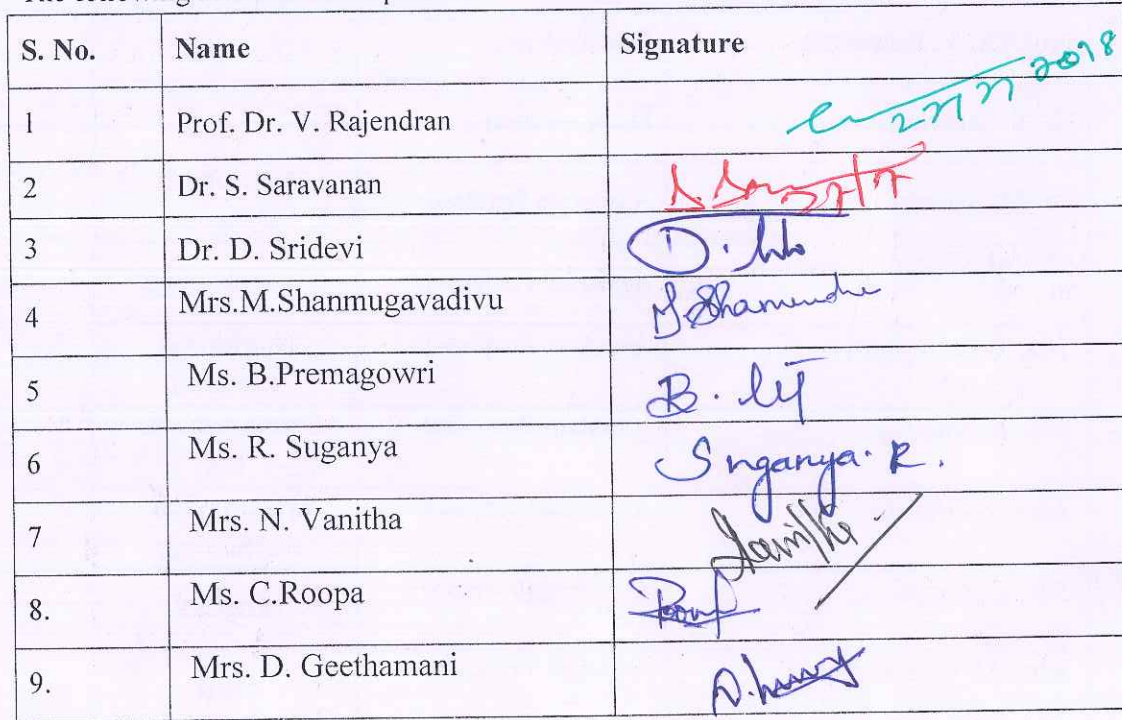 The following
S. No. Name Signature
1 Prof. Dr. V. Rajendran 2018
2 Dr. S. Saravanan
3 Dr. D. Sridevi D.
4 Mrs.M.Shanmugavadivu
5 Ms. B.Premagowri B.
6 Ms. R. Suganya Suganya. R.
7 Mrs. N. Vanitha
8. Ms. C.Roopa
9. Mrs. D. Geethamani